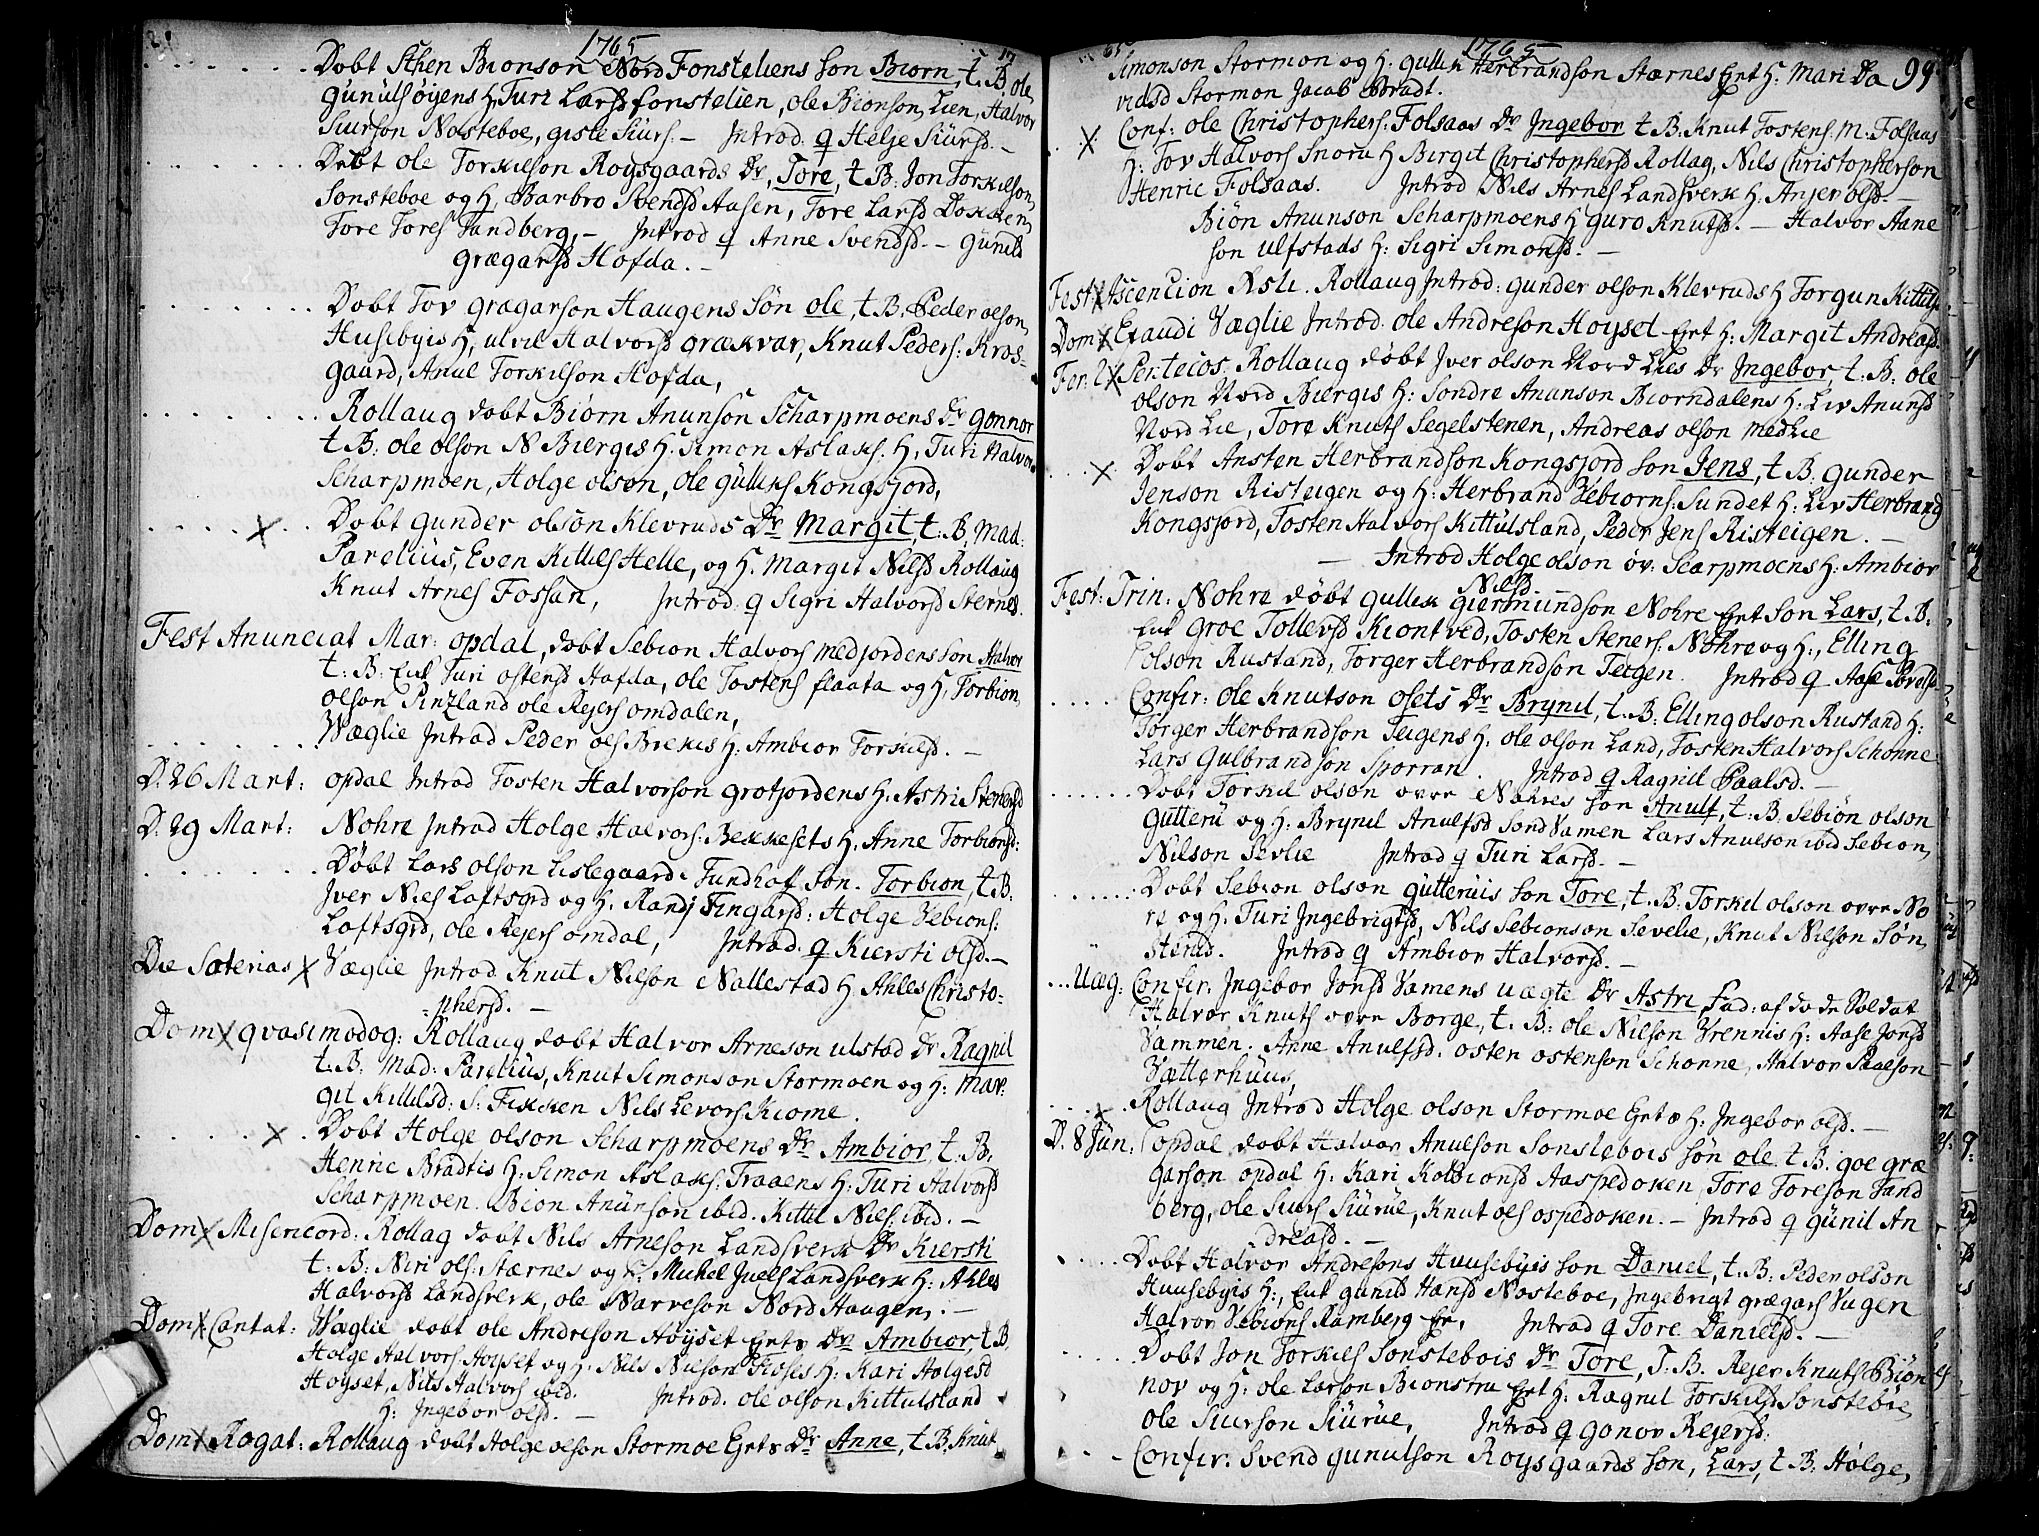 1765
Døbt Sthen Bionson Nord Fonsteliens Son Biorn, t. B. ole
Gunulsøyens H, Turi Larsd fonstelien, ole Bionson Lien, Halvor
Siurson Nosteboe, giste Siurs. – Introd. q Helje Siursd. –
Døbt ole Torkilson Roysgaards Dr, Tore, t. B: Jon Torkilson,
Sonsteboe og H, Barbro Svendsd Aasen, Tore Larsd Dokken,
Tore Tores Tandberg, – Introd q Anne Svendsd. – Gunild
Grægarsd Hofda. –
Døbt Tov grægarson Haugens Søn ole, t. B: Peder olson,
Husebyis H, ulvil Halvorsd grækvar, Knut Peders: Kros-
gaard, Anul Torkilson Hofda,
Rollaug døbt Biørn Anunson Scharpmoens Dr gonnor
t. B: ole olson N Biergis H. Simon Aslaks: H, Turi Halvors
Scharpmoen, Holge olson, ole gulliks Kongsjord,
X Døbt gunder olson Klevruds Dr Margit, t. B, Mad:
Parelius, Even Killies Helle, og H. Margit Nilsd Rollaug
Knut Arnes Fossan, Introd: q Sigri Halvorsd Sternes.
Fest Anunciat Mar: opdal, døbt Sebion Halvors medjordens son Halvor
t. B: Enk Turi ostensd Hafda, ole Tostens flaata og H, Torbion
olson Pintzland ole Rejers omdalen,
Væglie Introd Peder ols Brekis H: Ambior Torkilsd. –
D. 26 Mart: opdal Introd Tosten Halvorson grotjordens H: Astri Stenersd
D. 29 Mart: Nohre Introd Holge Halvors: Bekkesets H, Anne Torbionsd:
Døbt Lars olson Lislegaard: Tundhof Son. Torbion, t. B.
Iver Niels Laftsgrd og H. Randj Fingarsd: Holge Vebions:
Laftsgrd, ole Rejers omdal, Introd. q Kiersti olsd. –
Die Soterias X Væglie Introd Knut Nilson Nallestad H Ahles Christo-
phersd. –
Dom X qvasimodog: Rollaug døbt Halvor Arneson ulstad Dr Ragnil
t. B. Mad: Parelius, Knut Simonson Stormoen og H: Mar-
git Killilsd: S: Fekken Nils Levors Kiome.
X Døbt Holge olson Scharpmoens Dr Ambior, t. B.
Henric Bradtis H: Simon Aslaks: Traaens H: Turi Halvorsd
Scharpmoen. Bion Anunson ibid. Kittil Niels: ibid. –
Dom X Misericord: Rollag døbt Nils Arneson Landsverk Dr Kiersti
t. B: Niri ols: Stærnes og H. Michel Juels Landsverk H: Ahles
Halvorsd Landsverk, ole Narveson Nord Haugen. –
Dom X Cantat: Væglie døbt ole Andreson Høyset Ents Dr Ambior, t. B.
Holge Halvors Hoyset og H. Nils Nielson H: Kari Holgesd
Hoyset, Nils Halvors ibid. Introd. ole olson Kittulsland
H: Ingebor olsd. –
Dom X Rogat: Rollaug døbt Holge olson Stormoe Ents Dr Anne, t. B. Knut
1765
99
Simonson Stormon og H. gullik Herbrandson Stærnes Ent H. Mari Da
vidsd Stormon Jacob Bradt.
X Conf: ole Christophers: Folsaas Dr Ingebor t. B: Knut Tostens: M: Folsaas
H: Tov Halvors Snoru H Birgit Christophersd Rollag, Nils Christopherson
Henric Folsaas. Introd Nils Arnes Landsverk H: Anjer olsd. –
Biôn Anunson Scharpmoens H Guro Knutsd. – Halvor Aane
son ulfstads H: Sigri Simonsd. –
Fest X Ascencion Rollaug Introd: gunder olson Klevruds H Torgun Kittilsd
Dom X Exaudi Væglie Introd. ole Andreson Hoyset Ent H: Margit Andreasd.
Fer: 2 X Pentecos. Rollaug døbt Iver olson Nord Lies Dr Ingebor, t. B: ole
olson Nord Biergis H: Sondre Anunson Biorndalens H: Liv Anunsd
Nord Lie, Tore Knuts Segelstenen, Andreas olson medlie
X Døbt Ansten Herbrandson Kongsjord Son Jens, t. B. Gunder
Jenson Risteigen og H: Herbrand Vebiorns: Sundet H: Liv Herbrand
Kongsjord, Tosten Halvors Kittulsland, Peder Jens Risteigen. –
– Introd Holge olson øv: Scarpmoens H: Ambior
Nilsd.
Fest: Trin: Nohre døbt gullik giermundson Nohre Ent Son Lars, t. B.
Enk groe Tollevsd Kiontved, Tosten Steners: Nohre og H:, Elling
olson Rustand, Torger Herbrandson Teigen. Introd q Aase Toresd
Confir: ole Knutson osets Dr Brynil, t. B: Elling olson Rustand H:
Torger Herbrandson Teigens H, ole olson Land, Tosten Halvors Schonne
Lars Gulbrandson Sporran. Introd q Ragnil Paalsd. –
Døbt Torkil olson ovre Nohres Son Anulf, t. B. Sebiôn olson
Gutteru og H: Brynil Anulfsd Sond Vamen Lars Anulson ibid Sebion,
Nilson Sevlie Introd q Turi Larsd. –
Døbt Sebion olson gutteruis Son Tore, t. B: Torkil olson ovre No
re og H: Turi Ingebrigtsd, Nils Sebionson Sevelie, Knut Nilson Søn,
Sterud. Introd q Ambior Halvorsd. –
Uæg: Confir: Ingebor Jonsd Vamens uægte Dr Astri Fad: af døde Soldat
Halvor Knuts ovre Borge, t. B: ole Nilson Vrennis H: Aase Jonsd
Vammen. Anne Anulfsd. osten ostenson Schonne, Halvor Paalson
Vætterhuus,
X Rollaug Introd Holge olson Stormoe Ents H: Ingebor olsd. –
D. 8 Jun: opdal døbt Halvor Anulson Sonstebois Søn ole t. B. goe græ
garson opdal H: Kari Kolbionsd Aaspedoken, Tore Toreson Tand
berg, ole Siurs Siurue, Knut ols ospedoken. – Introd q gunil An
dreasd. –
Døbt Halvor Andresons Huusebyis Son Daniel, t. B: Peder olson
Huusebyis H:, Enk gunild Hansd Nosteboe, Ingebrigt grægars Vugen
Halvor Vebions Ramberg Er, Introd q Tore Danielsd. –
Døbt Jon Torkils Sonstebois Dr Tore, T. B. Rejer Knuts Biôn
nov og H: ole Larson Bionstru Ent H: Ragnil Torkilsd Sonstebøe,
ole Siurson Siurue, Introd q gonov Rejersd:
Confir: Svend gunulson Roysgaards Son, Lars, t. B: Holge,